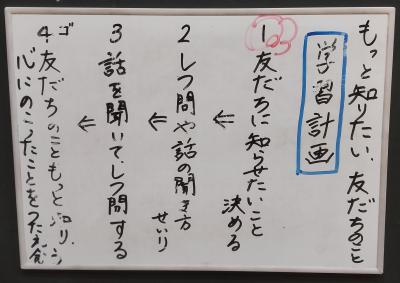 もっと知りたい、友だちのこと
学習計画
1 友だちに知らせたいこと
決める
⇐
2 しつ問や話の聞き方
せいり
⇐
3 話を聞いて、しつ問する
⇐
ゴ
4 友だちのこともっと知り、
心にのこったことをつたえ合